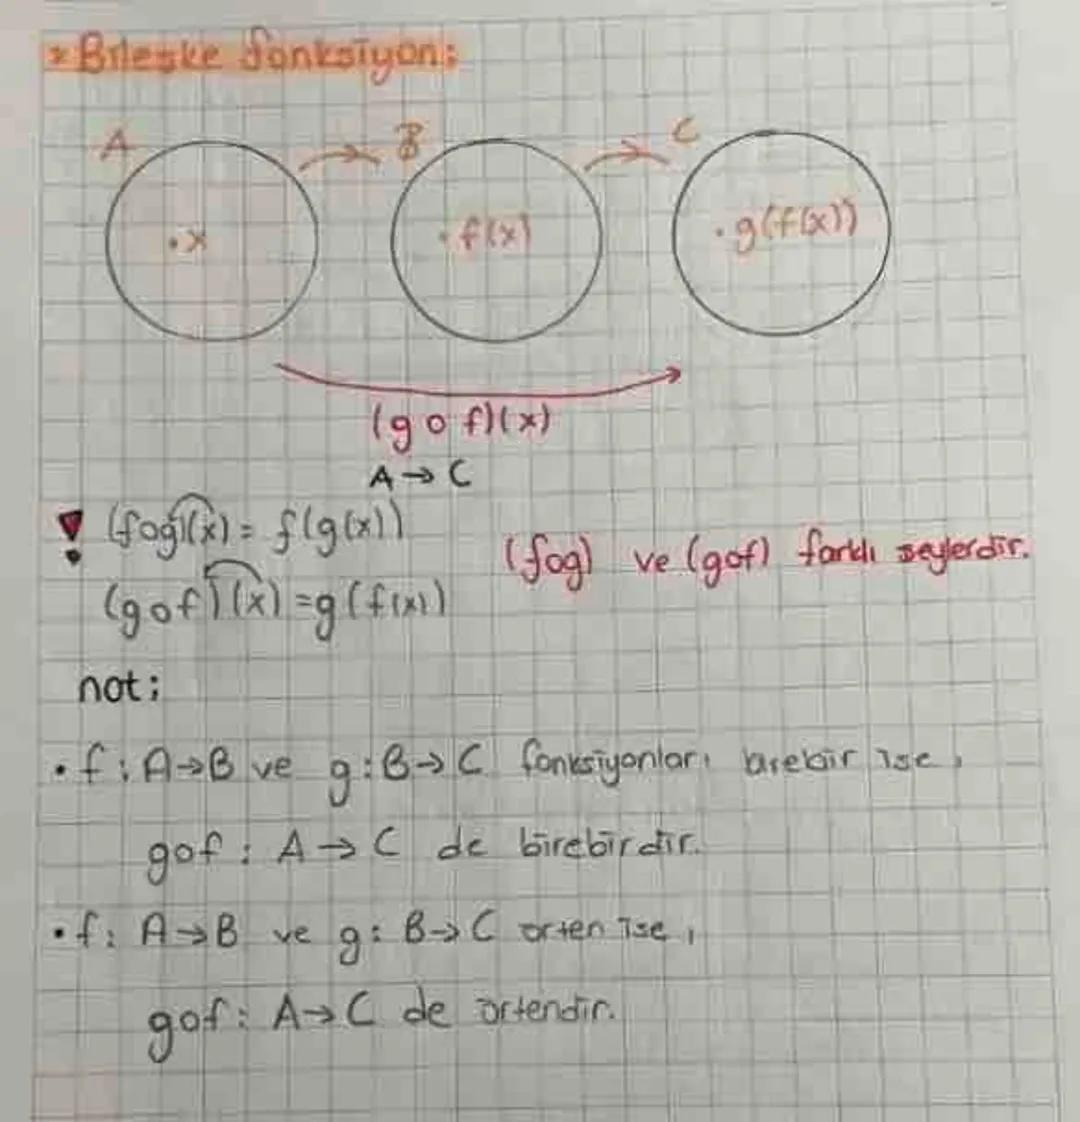 * Bileşke fonksiyon:
A → B → C
. x . f(x) . g(f(x))
(g o f)(x)
A → C
! (fog)(x) = f(g(x))
(fog) ve (gof) farklı şeylerdir.
(gof)(x) = g(f(x))
not:
• f: A→B ve g: B→C fonksiyonları birebir ise,
gof: A→C de birebirdir.
• f: A→B ve g: B→C örten ise,
gof: A→C de örtendir.